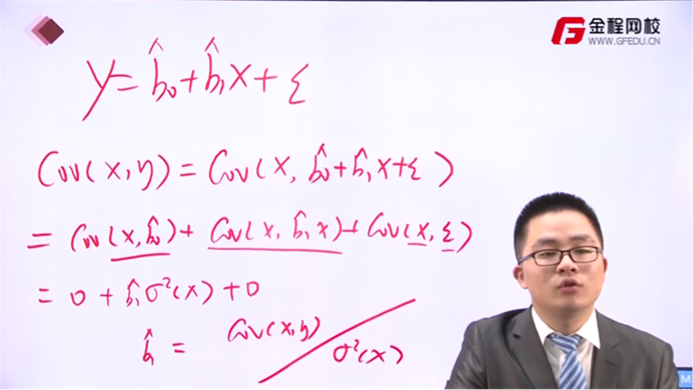 金程网校
WWW.GFEDU.CN
y = b̂₀ + b̂₁x + ε
Cov(x,y) = Cov(x, b̂₀+b̂₁x+ε)
= Cov(x,b̂₀) + Cov(x,b̂₁x) + Cov(x,ε)
= 0 + b̂₁σ²(x) + 0
b̂₁ = Cov(x,y) / σ²(x)
M